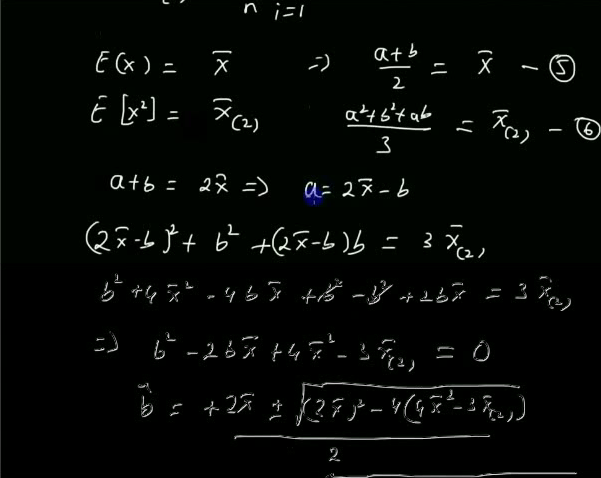 n i=1
E(x) = x̄ => (a+b)/2 = x̄ - ⑤
E[x²] = x̄₍₂₎ (a²+b²+ab)/3 = x̄₍₂₎ - ⑥
a+b = 2x̄ => a = 2x̄-b
(2x̄-b)² + b² + (2x̄-b)b = 3 x̄₍₂₎
b² + 4x̄² - 4bx̄ + b² - b² + 2bx̄ = 3x̄₍₂₎
=> b² - 2bx̄ + 4x̄² - 3x̄₍₂₎ = 0
b̂ = (+2x̄ ± √((2x̄)² - 4(4x̄² - 3x̄₍₂₎)))/2